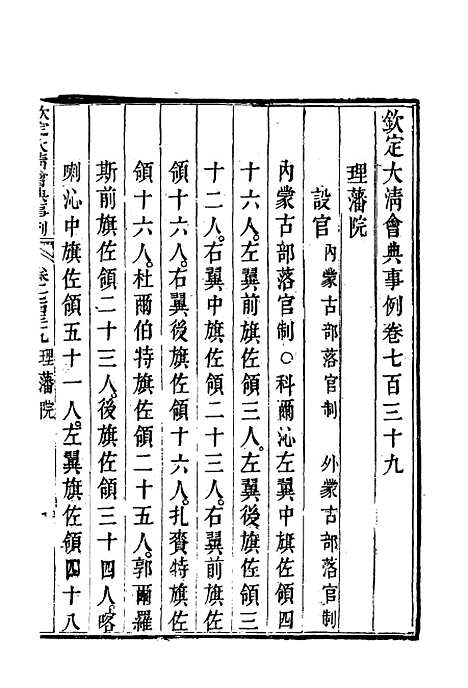 欽定大清會典事例卷七百三十九
理藩院
設官 內蒙古部落官制 外蒙古部落官制
內蒙古部落官制○科爾沁左翼中旗佐領四
十六人。左翼前旗佐領三人。左翼後旗佐領三
十二人。右翼中旗佐領二十三人。右翼前旗佐
領十六人。右翼後旗佐領十六人。扎賚特旗佐
領十六人。杜爾伯特旗佐領二十五人。郭爾羅
斯前旗佐領二十三人。後旗佐領三十四人。喀
喇沁中旗佐領五十一人。左翼旗佐領四十八
欽定大清會典事例 卷七百三十九 理藩院 一